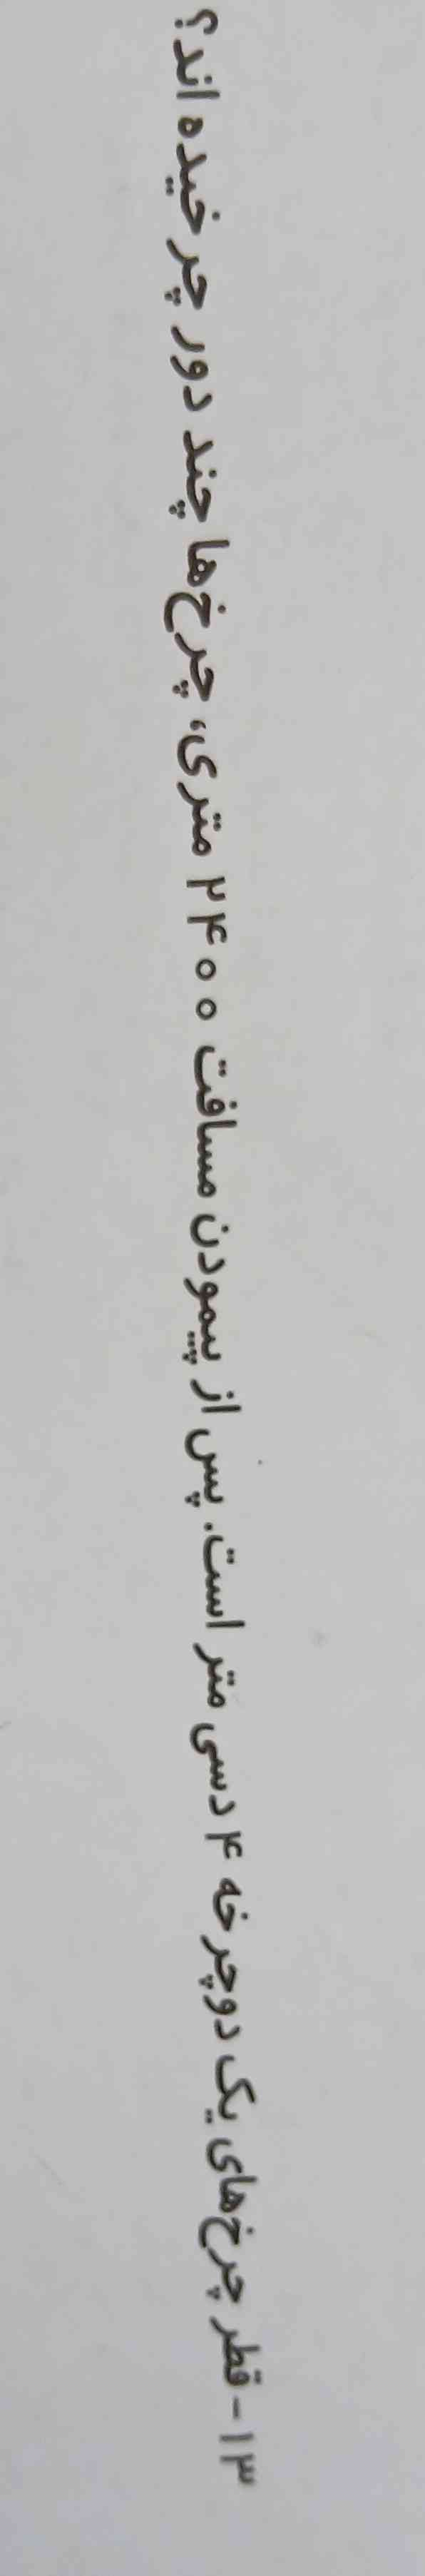 ۱۳- قطر چرخ‌های یک دوچرخه ۴ دسی متر است. پس از پیمودن مسافت ۲۴۰۰ متری، چرخ‌ها چند دور چرخیده‌اند؟